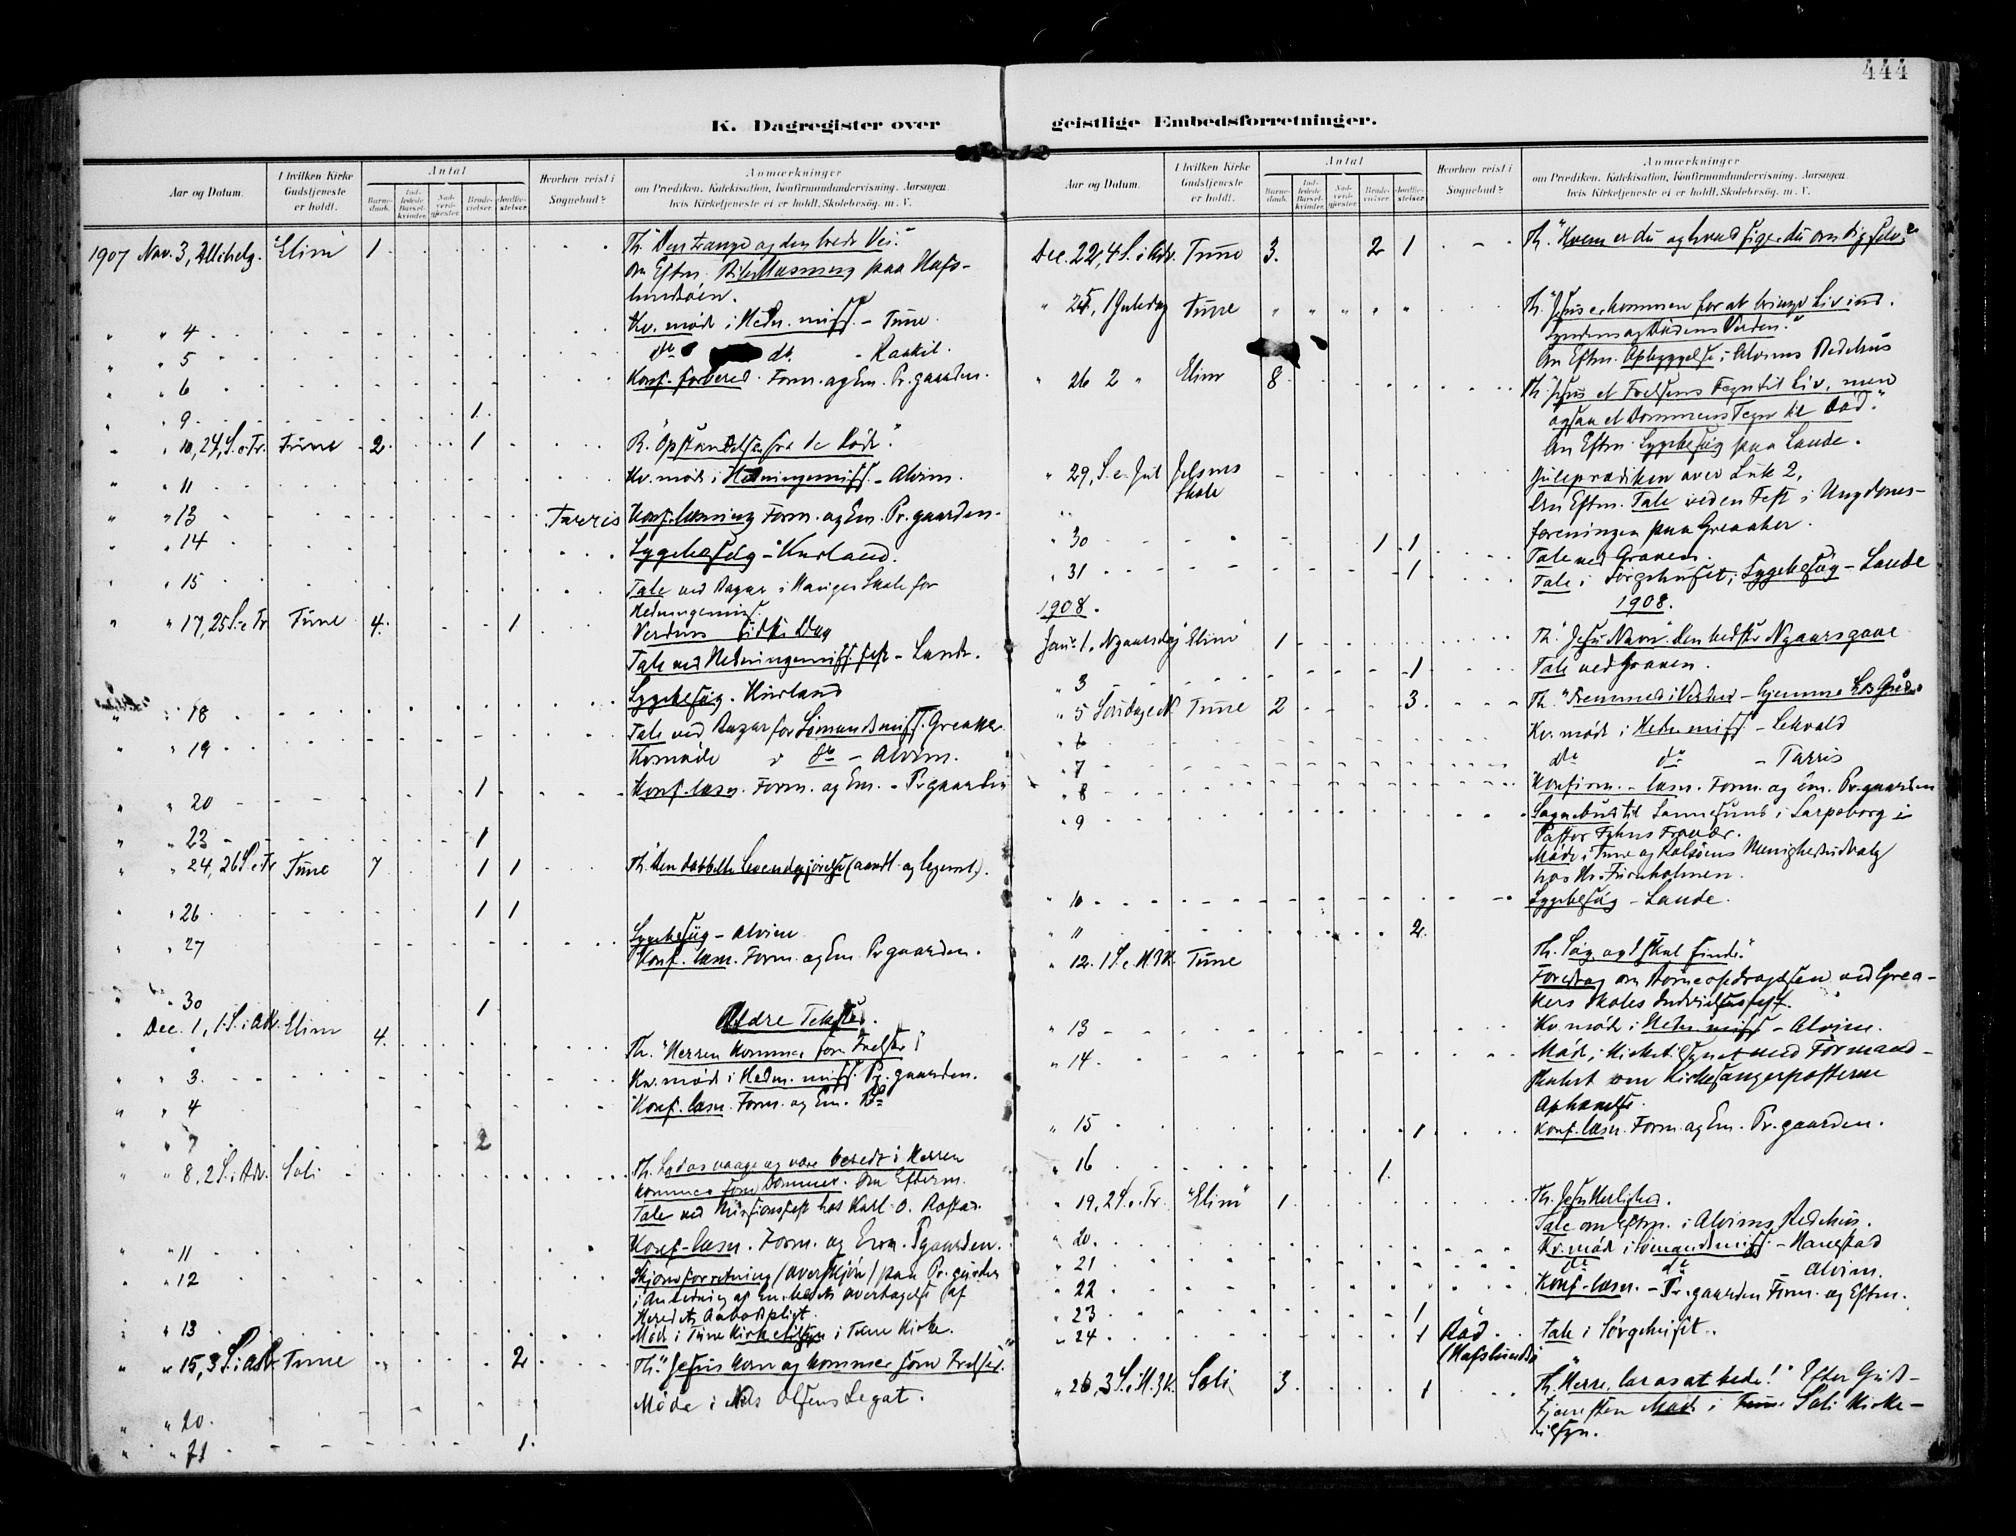 444
K. Dagregister over
geistlige Embedsforretninger.
Aar og Datum.
I hvilken Kirke Gudstjeneste er holdt.
Antal
Barnedaab.
Indledede Barselkvinder.
Nadverdgjester.
Brudevielser.
Jordfæstelser.
Hvorhen reist i Sognebud?
Anmærkninger
om Prædiken, Katekisation, Konfirmandundervisning, Aarsagen
hvis Kirketjeneste ei er holdt, Skolebesøg, m. V.
1907 Nov. 3, Allehelg. "Elim" 1 Th. "Den trange og den brede Vei."
Om Eftm. paa Hafs-
lundsöen.
" " 4 Kv. møde i Hedn. miss. - Tune.
" " 5 do do - Raakil.
" " 6 Konf. forbered. Form. og Em. Pr. gaarden.
" " 9 1.
" " 10, 24 S. e. Tr. Tune 2 1 Opstandelse fra de Døde."
" " 11 Kv. møde i Hedningemiss. - Alvim.
" " 13 Tarris Konf. læsning Form. og Em. Pr. gaarden.
" " 14 Sygebesøg - Kurland.
" " 15 Tale ved Bazar i Skole for
Hedningemiss.
" " 17, 25 S. e. Tr. Tune 4 1 Verdens sidste Dag
Tale ved Hedningemiss. fest - Lande.
" " 18 Sygebesøg. Kurland
" " 19 Tale ved Bazar for Sømandsmiss. Greaaker
Kv. møde i do - Alvim.
" " 20 1 Konf. læsn. Form. og Em. - Pr. gaarden
" " 23 1
" " 24, 26 S. e. Tr. Tune 7 1 1 Th. Den dobbelte Levendegjørelse (aandl. og legeml.).
" " 26 1 1
" " 27 Sygebesøg - Alvim
Konf. læsn. Form. og Em. Pr. gaarden.
" " 30 1
Ældre Tekster.
" Dec. 1, 1 S. i Adv. Elim 4 Th. "Herren kommer som Frelser"
" " 3 Kv. møde i Hedn. miss. Pr. gaarden.
" " 4 Konf. læsn. Form. og Em. Do
" " 7 2
" " 8, 2 S. i Adv. Soli Th. Lad os vaage og være beredt i Herren
kommer som Dommer. Om Efterm.
Tale ved Missionsfest hos Karl O. Rostad.
" " 11 Konf-læsn. Form. og Em. Pr. gaarden.
" " 12 Skjønsforretning (overskjön) paa Pr. gaarden
i Anledning af Embedets overtagelse af
Herredets Aabodspligt.
" " 13 Møde i Tune Kirketilsyn i Tune Kirke.
" " 15, 3 S. i Adv. Tune 2 Th. "Jesus kom og kommer som Frelser."
Møde i Nils Olsens Legat.
" " 20
" " 21 1.
Aar og Datum.
I hvilken Kirke Gudstjeneste er holdt.
Antal
Barnedaab.
Indledede Barselkvinder.
Nadverdgjester.
Brudevielser.
Jordfæstelser.
Hvorhen reist i Sognebud?
Anmærkninger
om Prædiken, Katekisation, Konfirmandundervisning, Aarsagen
hvis Kirketjeneste ei er holdt, Skolebesøg, m. V.
Dec. 22, 4 S. i Adv. Tune 3. 2 1 Th. "Hvem er du og hvad siger du om dig selv?"
" 25, 1 Juledag Tune " " " " " Th. "Jesus er kommen for at bringe Liv ind i
Syndens og Dødens Verden."
Om Eftm. Opbyggelse i Alvims Bedehus
" 26 2 " Elim 8 Th. "Jesus et Frelsens Tegn til Liv, men
ogsaa et Dommens Tegn til Død."
Om Eftm. Sygebesøg paa Lande.
" 29, S. e. Jul Jelsnes Skole Juleprædiken over Luk 2.
Om Eftm. Tale ved en Fest i Ungdoms-
foreningen paa Greaaker.
" 30 1 1 Tale ved Graven.
" 31 1 Tale i Sørgehuset; Sygebesøg - Lande
1908. 1908.
Jan. 1, Nyaarsdag "Elim" 1 Th. "Jesu Navn" den bedste Nyaarsgave
" 3 1 Tale ved Graven.
" 5 Tune 2 3 Th. "Fremmed i Verden - hjemme hos Gud"
" 6 Kv. møde i Hedn. miss. - Lekvold
" 7 do do - Tarris
" 8 Konfirm. - læsn. Form. og Em. Pr. gaarden
" 9 Sognebud til Sannesund i Sarpsborg i
Pastor Fravær.
Møde i Tune og Rolsöens Menighedsudvalg
hos
" 10 Sygebesøg - Lande.
" 11 2
" 12. 1 S. e. H3K. Tune Th. Søg og I skal finde."
Foredrag om Börneopdragelsen ved Grea-
kers Skoles Indvielsesfest.
" 13 Kv. møde i Hedn. miss - Alvim.
" 14 Møde i Kirketilsynet med Formand-
skabet om Kirkesangerposterne
Ophævelse.
" 15 1 Konf. læsn. Form. og Em. Pr. gaarden.
" 16 1.
" 19, 2 S. e. Tr. "Elim" 1 Th. Jesu Herlighed.
Tale om Eftm. i Alvims Bedehus.
" 20 Kv. møde i Sømandsmiss. - Hanestad
" 21 do do - Alvim.
" 22 Konf-læsn. - Pr. gaarden Form. og Eftm.
" 23 1
" 24 1 Rød (Hafslundsö) Tale i Sørgehuset.
" 26, 3 S. e. H.3K. Soli 3 1 Th. "Herre, lær os at bede!" Efter Guds-
tjenesten Møde i Tune Soli Kirke-
tilsyn.